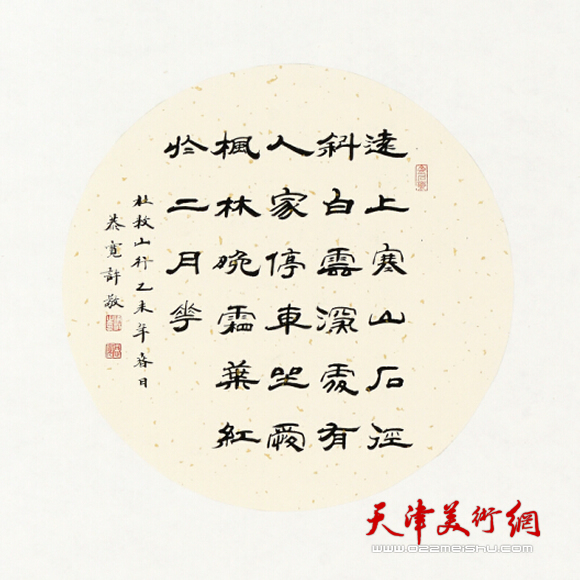 遠上寒山石徑
斜白雲深處有
人家停車坐愛
楓林晚霜葉紅
於二月花
杜牧山行乙未年春日
寬許敬
天津美術網
www.022meishu.com